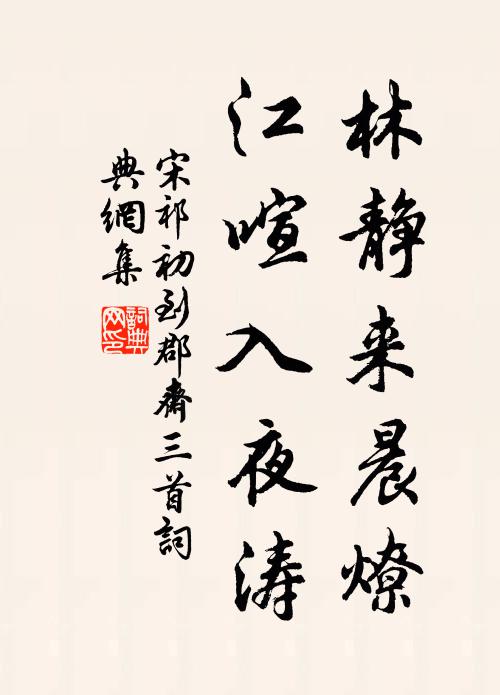 林静来晨燎
江喧入夜涛
宋祁初到郡齋三首詞
典網集
詞典网印